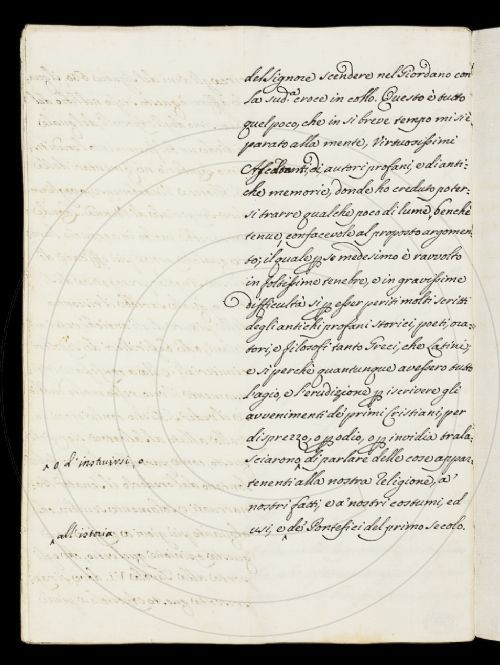 del Signore scendere nel Giordano con
la sud.a croce in collo. Questo è tutto
quel poco, che in sì breve tempo mi si è
parato alla mente, Virtuosissimi
di autori profani, e di anti=
che memorie, donde ho creduto poter=
si trarre qualche poco di lume, benchè
tenue, confacevole al proposto argomen=
to; il quale p se medesimo è ravvolto
in foltissime tenebre, e in gravissime
difficultà sì p esser periti molti scritti
degli antichi profani storici, poeti, ora=
tori, e filosofi tanto Greci, che Latini,
e sì perchè quantunque avessero tutto
l'agio, e l'erudizione p iscrivere gli
avvenimenti de' primi Cristiani, per
disprezzo, o p odio, o p invidia trala=
sciarono di parlare delle cose appar=
tenenti alla nostra Religione, a'
nostri fatti, e a' nostri costumi, ed
usi, e de' Pontefici del primo secolo.
o d'instruirsi, o
all'istoria